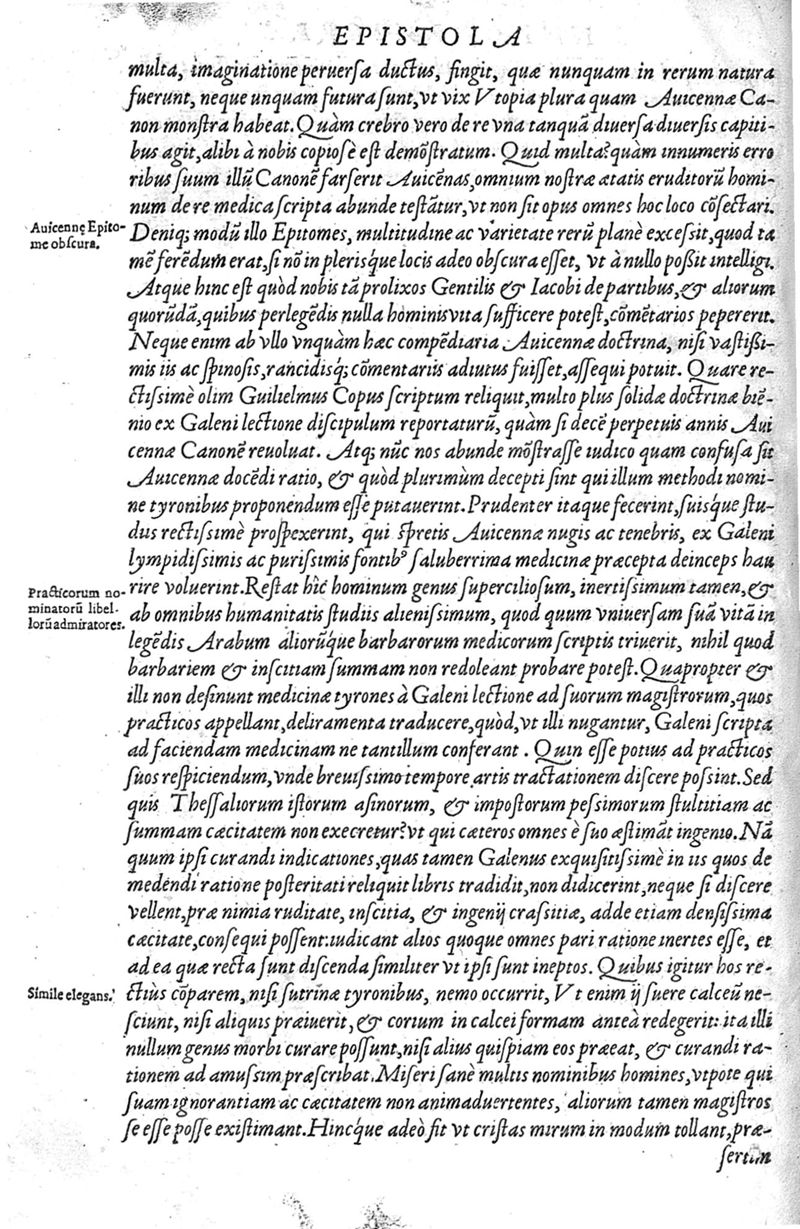 EPISTOLA
multa, imaginatione peruersa ductus, fingit, quæ nunquam in rerum natura
fuerunt, neque unquam futura sunt, vt vix Vtopia plura quam Auicennæ Ca-
non monstra habeat. Quàm crebro vero de re vna tanquã diuersa diuersis capiti-
bus agit, alibi à nobis copiosè est demõstratum. Quid multa? quàm innumeris erro
ribus suum illũ Canonẽ farserit Auicẽnas, omnium nostræ ætatis eruditorũ homi-
num de re medica scripta abunde testãtur, vt non sit opus omnes hoc loco cõsectari.
Auicennę Epito-
me obscura.
Deniq; modũ illo Epitomes, multitudine ac varietate rerũ planè excessit, quod ta
mẽ ferẽdum erat, si nõ in plerisq́ue locis adeo obscura esset, vt à nullo poßit intelligi.
Atque hinc est quòd nobis tã prolixos Gentilis & Iacobi de partibus, & aliorum
quorũdã, quibus perlegẽdis nulla hominis vita sufficere potest, cõmẽtarios pepererit.
Neque enim ab vllo vnquàm hæc compẽdiaria Auicennæ doctrina, nisi vastißi-
mis iis ac spinosis, rancidisq́; cõmentariis adiutus fuisset, assequi potuit. Quare re-
ctissimè olim Guilielmus Copus scriptum reliquit, multo plus solidæ doctrinæ biẽ-
nio ex Galeni lectione discipulum reportaturũ, quàm si decẽ perpetuis annis Aui
cennæ Canonẽ reuoluat. Atq; nũc nos abunde mõstrasse iudico quam confusa sit
Auicennæ docẽdi ratio, & quòd plurimùm decepti sint qui illum methodi nomi-
ne tyronibus proponendum esse putauerint. Prudenter itaque fecerint, suisq́ue stu-
diis rectissimè prospexerint, qui spretis Auicennæ nugis ac tenebris, ex Galeni
lympidissimis ac purissimis fontibꝰ saluberrima medicinæ præcepta deinceps hau
Practicorum no-
minatorũ libel-
lorũ admiratores.
rire voluerint. Restat hîc hominum genus superciliosum, inertissimum tamen, &
ab omnibus humanitatis studiis alienissimum, quod quum vniuersam suã vitã in
legẽdis Arabum aliorũq́ue barbarorum medicorum scriptis triuerit, nihil quod
barbariem & inscitiam summam non redoleant probare potest. Quapropter &
illi non desinunt medicinæ tyrones à Galeni lectione ad suorum magistrorum, quos
practicos appellant, deliramenta traducere, quòd, vt illi nugantur, Galeni scripta
ad faciendam medicinam ne tantillum conferant. Quin esse potius ad practicos
suos respiciendum, vnde breuissimo tempore artis tractationem discere possint. Sed
quis Thessaliorum istorum asinorum, & impostorum pessimorum stultitiam ac
summam cæcitatem non execretur? vt qui cæteros omnes è suo æstimãt ingenio. Nã
quum ipsi curandi indicationes, quas tamen Galenus exquisitissimè in iis quos de
medendi ratione posteritati reliquit libris tradidit, non didicerint, neque si discere
vellent, præ nimia ruditate, inscitia, & ingenij crassitie, adde etiam densissima
cæcitate, consequi possent: iudicant alios quoque omnes pari ratione inertes esse, et
ad ea quæ recta sunt discenda similiter vt ipsi sunt ineptos. Quibus igitur hos re-
Simile elegans.
ctiùs cõparem, nisi sutrinæ tyronibus, nemo occurrit, Vt enim ij suere calceũ ne-
sciunt, nisi aliquis præiuerit, & corium in calcei formam anteà redegerit: ita illi
nullum genus morbi curare possunt, nisi alius quispiam eos præeat, & curandi ra-
tionem ad amussim præscribat. Miseri sanè multis nominibus homines, vtpote qui
suam ignorantiam ac cæcitatem non animaduertentes, aliorum tamen magistros
se esse posse existimant. Hincq́ue adeò fit vt cristas mirum in modum tollant, præ-
sertim